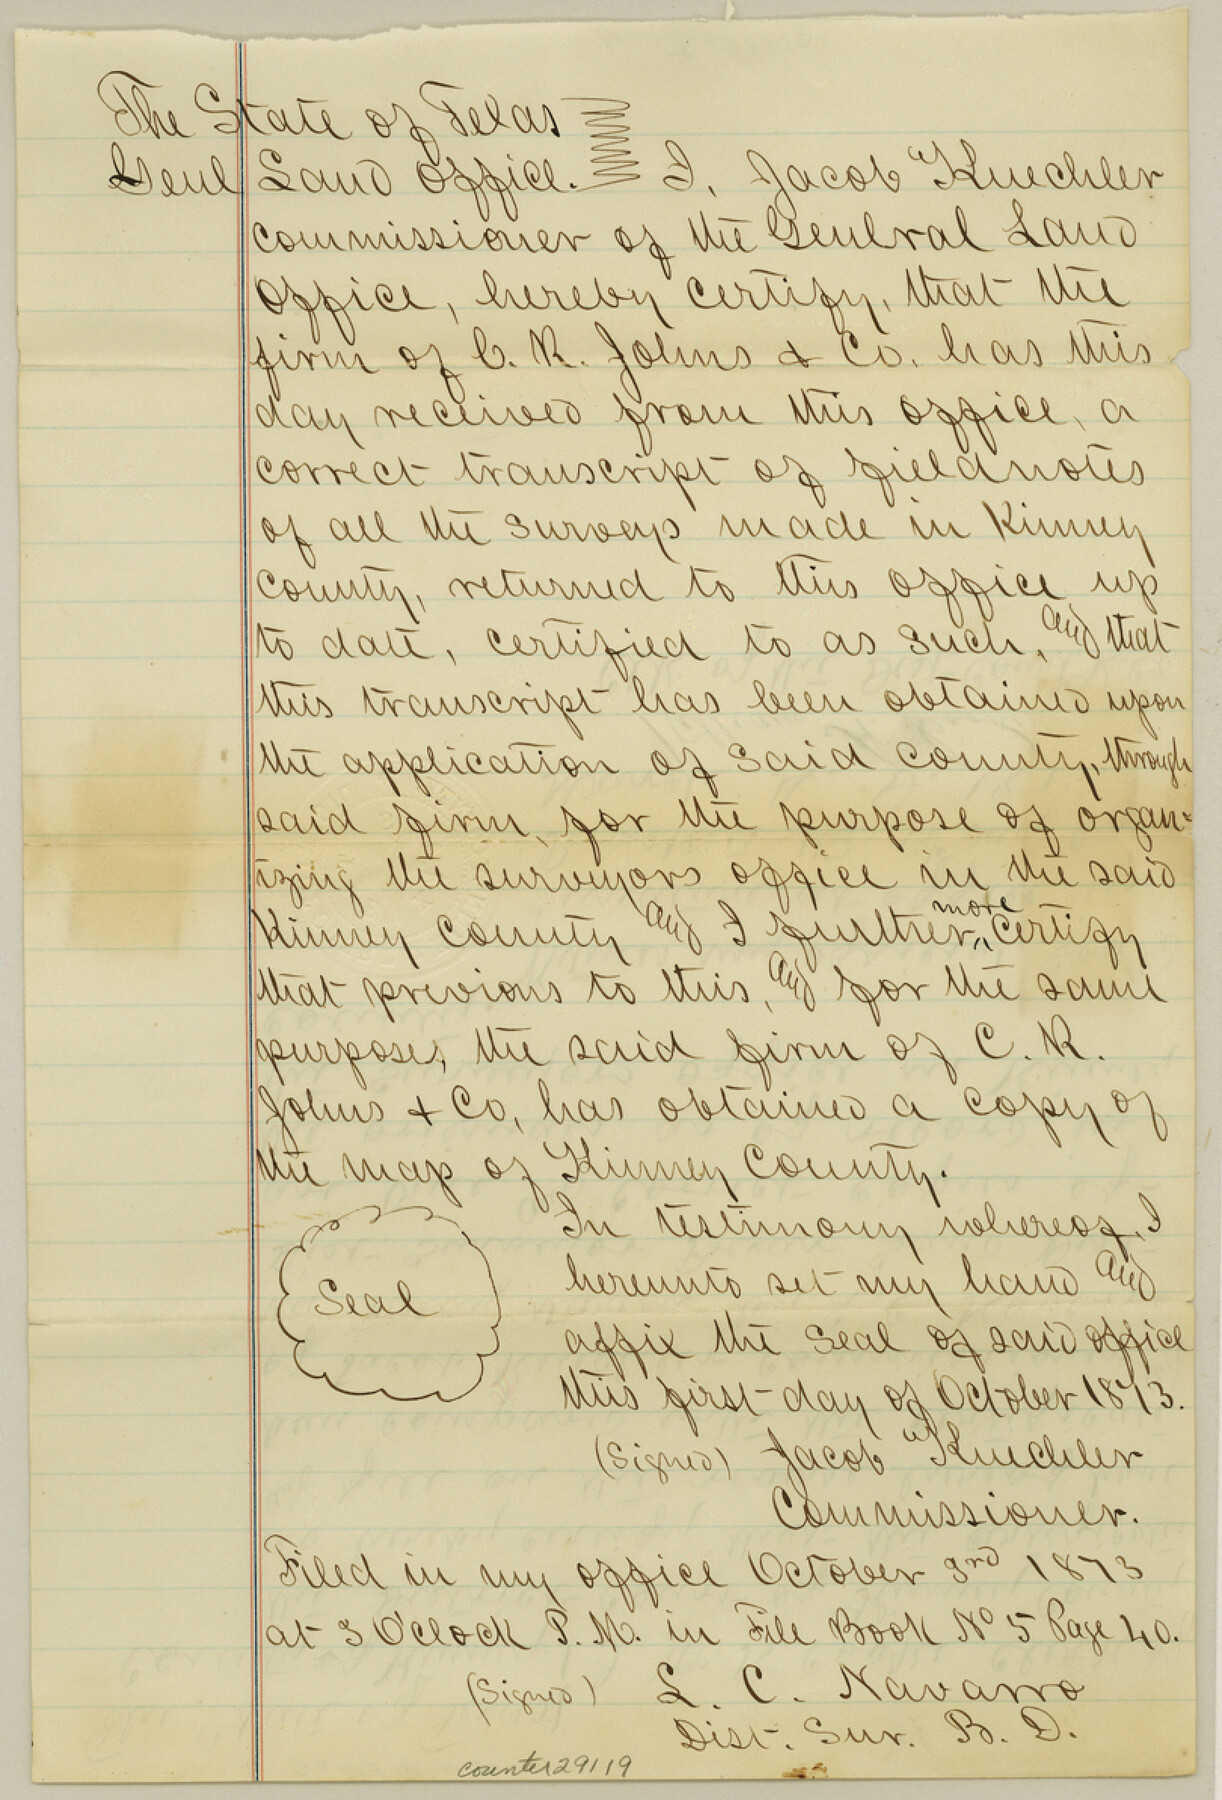 The State of Texas
Genl Land Office. I, Jacob Kuechler
commissioner of the General Land
Office, hereby certify, that the
firm of C. R. Johns & Co. has this
day received from this office, a
correct transcript of fieldnotes
of all the surveys made in Kinney
county, returned to this office up
to date, certified to as such, and that
this transcript has been obtained upon
the application of said county, through
said firm, for the purpose of organ-
izing the surveyors office in the said
Kinney County and I further more certify
that previous to this, and for the same
purposes, the said firm of C. R.
Johns & Co, has obtained a copy of
the map of Kinney County.
In testimony whereof, I
hereunto set my hand and
Seal
affix the seal of said office
this first day of October 1873.
(Signed) Jacob Kuechler
Commissioner.
Filed in my office October 3rd 1873
at 3 O'Clock P. M. in File Book No 5 Page 40.
(Signed) L. C. Navarro
Dist. Sur. B. D.
counter 29119